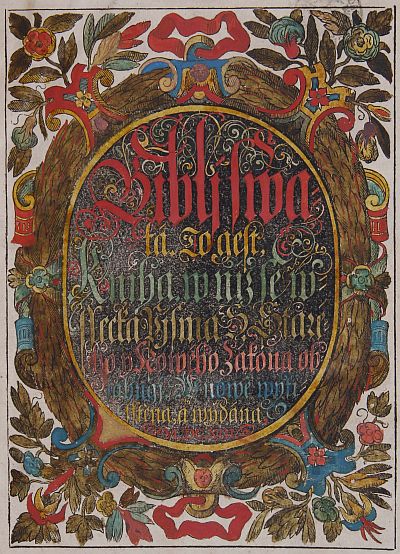 Biblj swa=
tá. To gest,
Kniha, w njž se w
ssecka Pjsma S. Staré
ho y Nowého Zákona ob
sahugj. W nowě wyti
sstěna, a wydaná.